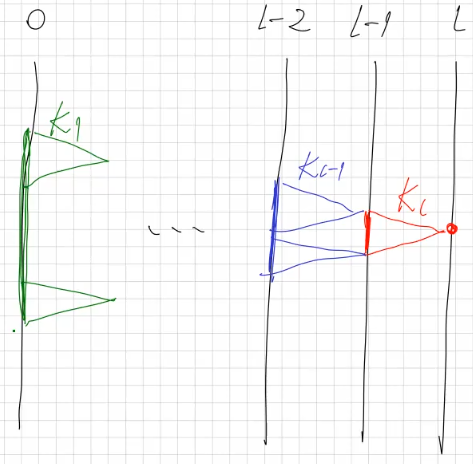 0 L-2 L-1 L
K1 K L-1 K L
...